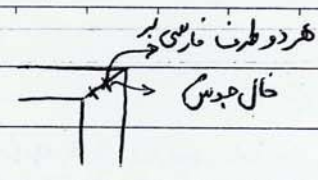 هر دو طرف فارسی بر
خال جوش